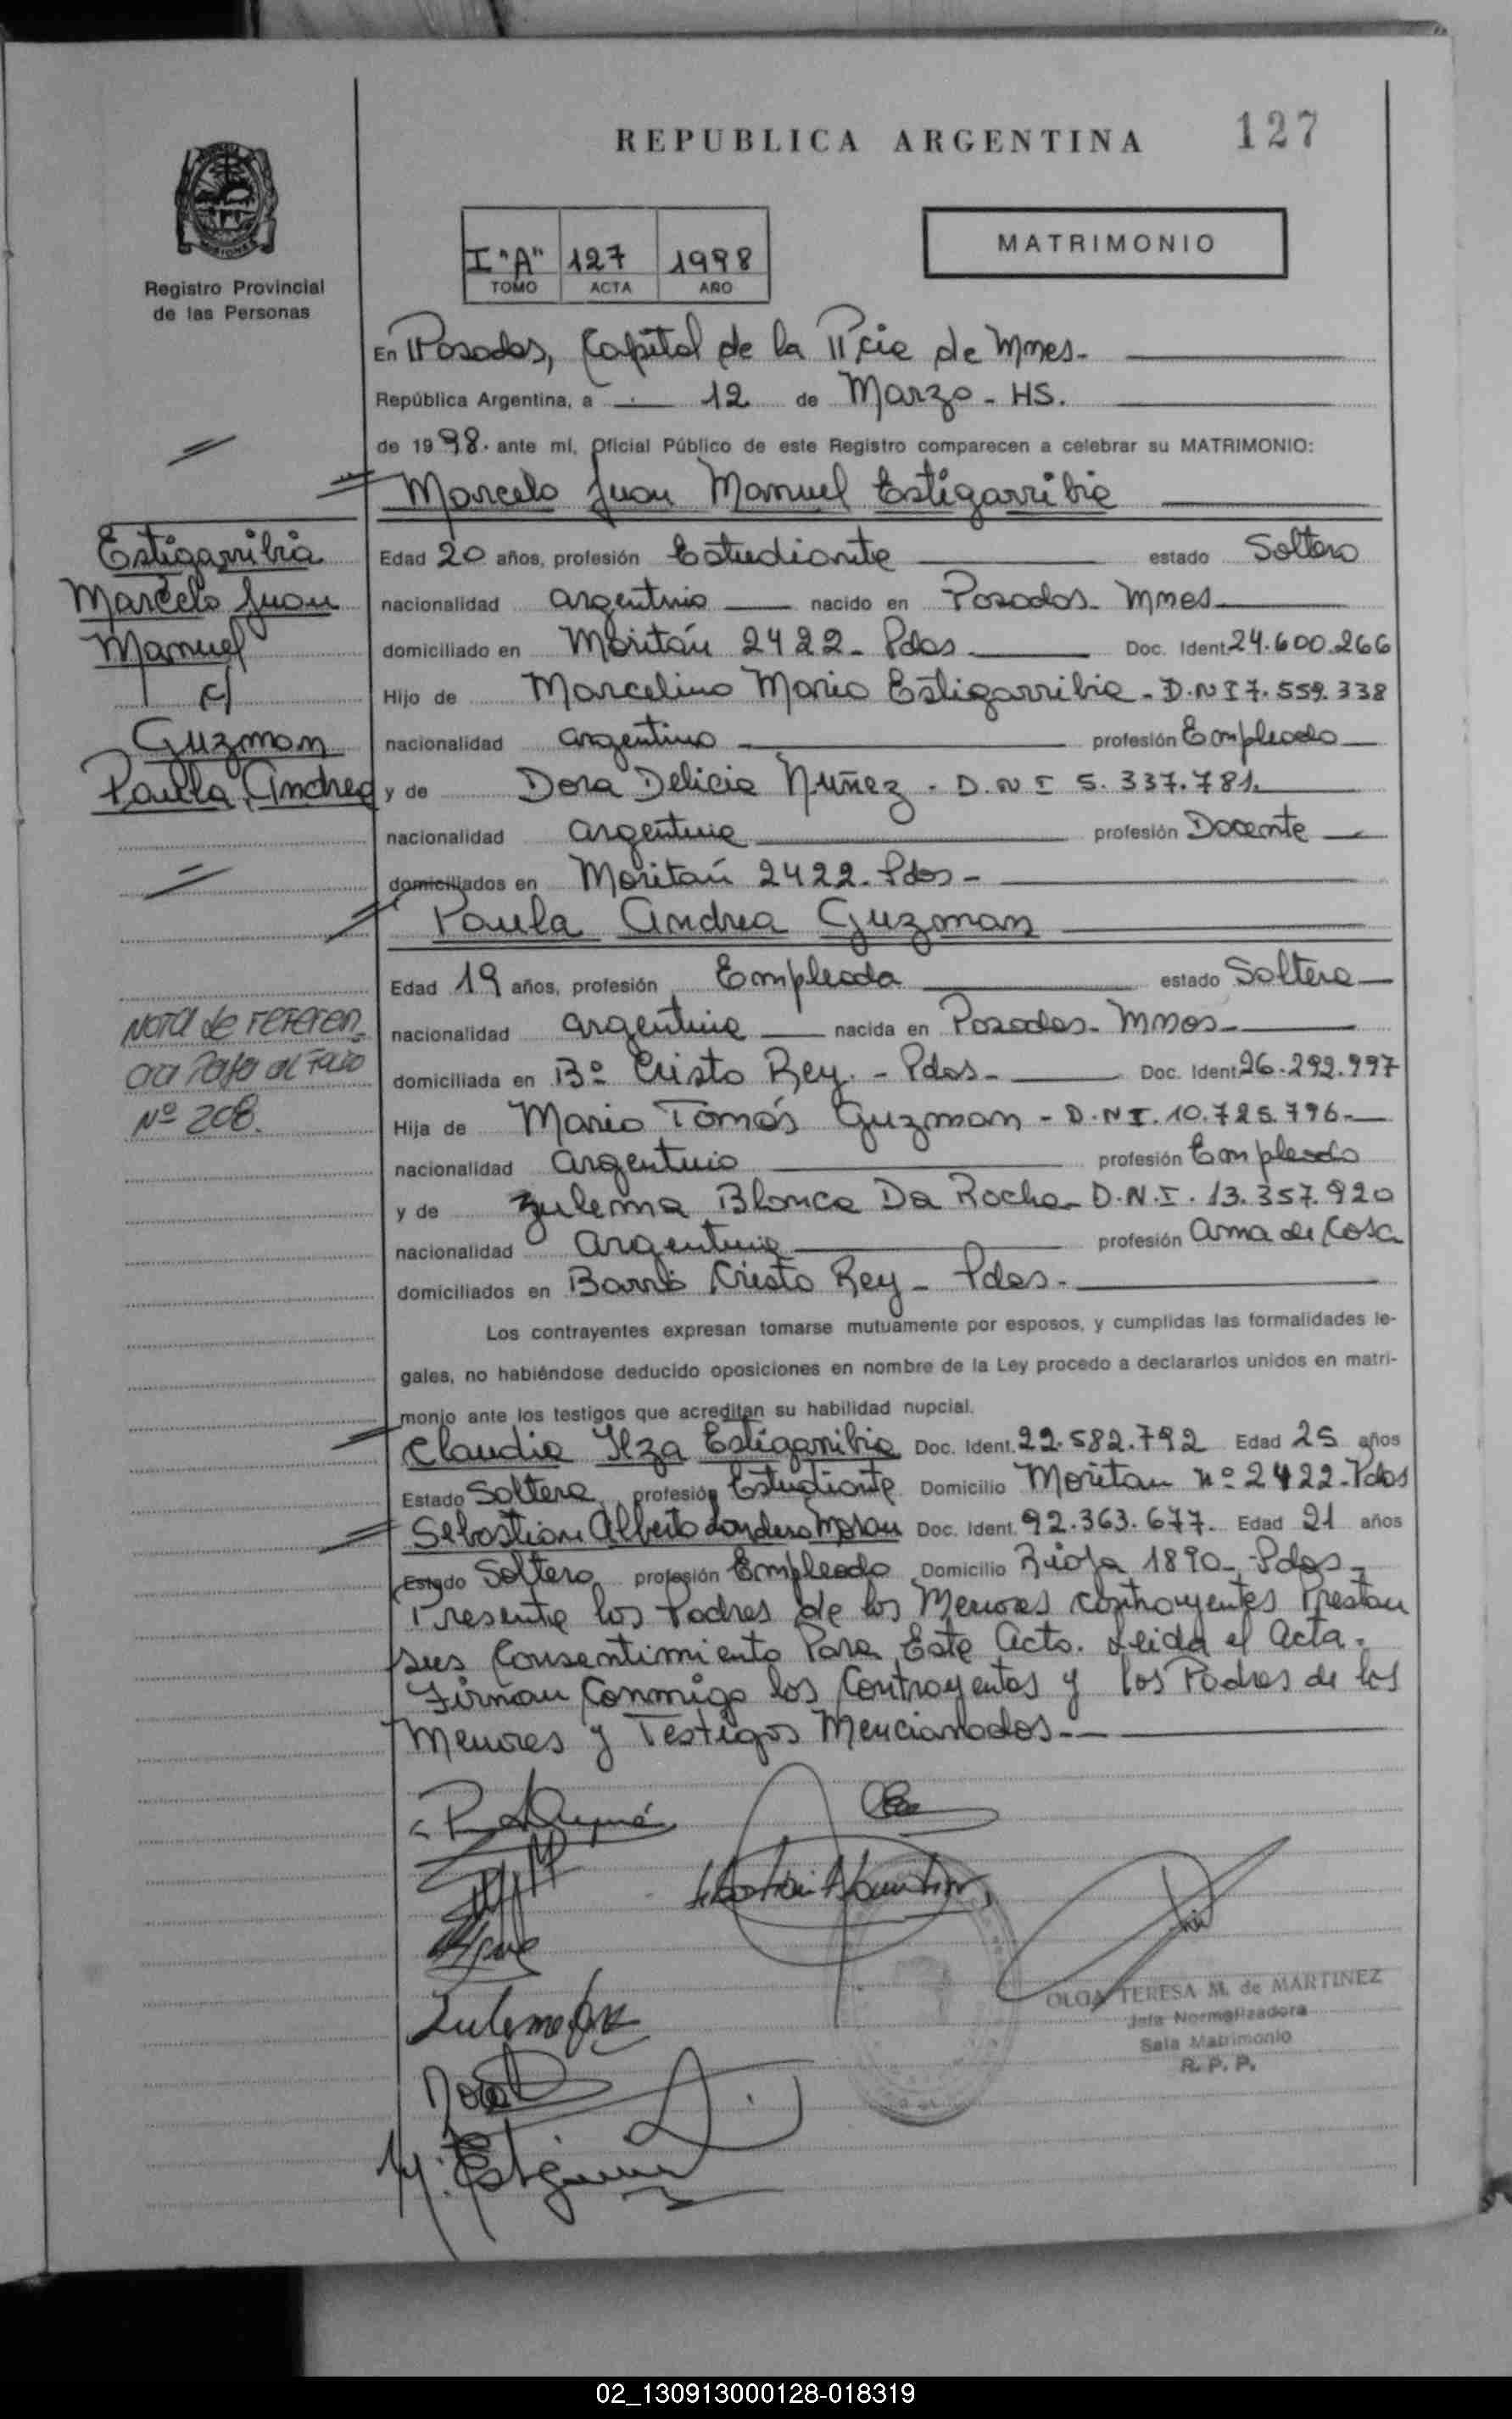 REPUBLICA ARGENTINA
127
I "A" 127 1998
TOMO ACTA AÑO
MATRIMONIO
Registro Provincial
de las Personas
En Posadas, Capital de la Pcia de Mnes.
República Argentina, a 12 de Marzo - HS.
de 1998. ante mí, Oficial Público de este Registro comparecen a celebrar su MATRIMONIO:
Marcelo Juan Manuel Estigarribia
Estigarribia
Marcelo Juan
Manuel
c/
Guzman
Paula Andrea
Edad 20 años, profesión Estudiante estado Soltero
nacionalidad argentino nacido en Posadas - Mnes
domiciliado en Moritán 2422 - Pdas Doc. Ident. 24.600.266
Hijo de Marcelino Mario Estigarribia - D.N.I 7.559.338
nacionalidad argentino profesión Empleado
y de Dora Delicia Nuñez - D.N.I 5.337.781.
nacionalidad argentina profesión Docente
domiciliados en Moritán 2422 - Pdas -
Paula Andrea Guzman
Edad 19 años, profesión Empleada estado Soltera
nacionalidad argentina nacida en Posadas - Mnes -
domiciliada en Bº Cristo Rey. - Pdas - Doc. Ident. 26.292.997
Hija de Mario Tomás Guzman - D.N.I. 10.725.796 -
nacionalidad argentino profesión Empleado
y de Zulema Blanca Da Rocha - D.N.I. 13.357.920
nacionalidad argentina profesión Ama de Casa
domiciliados en Barrio Cristo Rey - Pdas -
Nota de referen
cia Pasa al Folio
Nº 208.
Los contrayentes expresan tomarse mutuamente por esposos, y cumplidas las formalidades le-
gales, no habiéndose deducido oposiciones en nombre de la Ley procedo a declararlos unidos en matri-
monio ante los testigos que acreditan su habilidad nupcial.
Claudia Ilza Estigarribia Doc. Ident. 22.582.792 Edad 25 años
Estado Soltera profesión Estudiante Domicilio Moritan nº 2422 - Pdas
Sebastian Alberto Londero Moran Doc. Ident. 92.363.677. Edad 21 años
Estado Soltero profesión Empleado Domicilio Rioja 1890 - Pdas -
Presente los Padres de los Menores Contrayentes Prestan
sus Consentimiento Para Este Acto. Leida el Acta.
Firman Conmigo los Contrayentes y los Padres de los
Menores y Testigos Mencionados -
OLGA TERESA M. de MARTINEZ
Jefa Normalizadora
Sala Matrimonio
R. P. P.
02_130913000128-018319